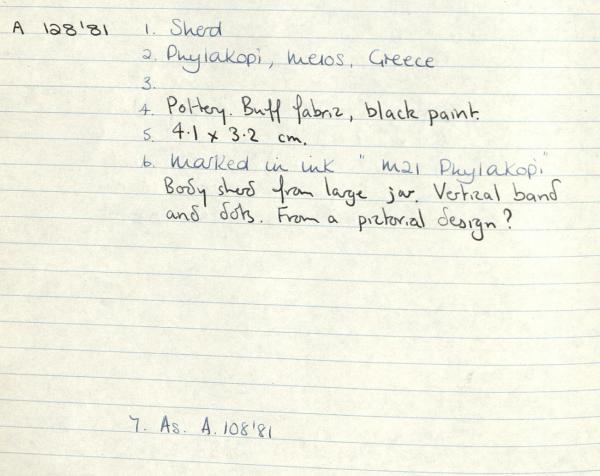 A 128'81 1. Sherd
2. Phylakopi, Melos, Greece
3.
4. Pottery. Buff fabric, black paint.
5. 4.1 x 3.2 cm.
6. Marked in ink "M21 Phylakopi"
Body sherd from large jar. Vertical band
and dots. From a pictorial design?
7. As. A.108'81